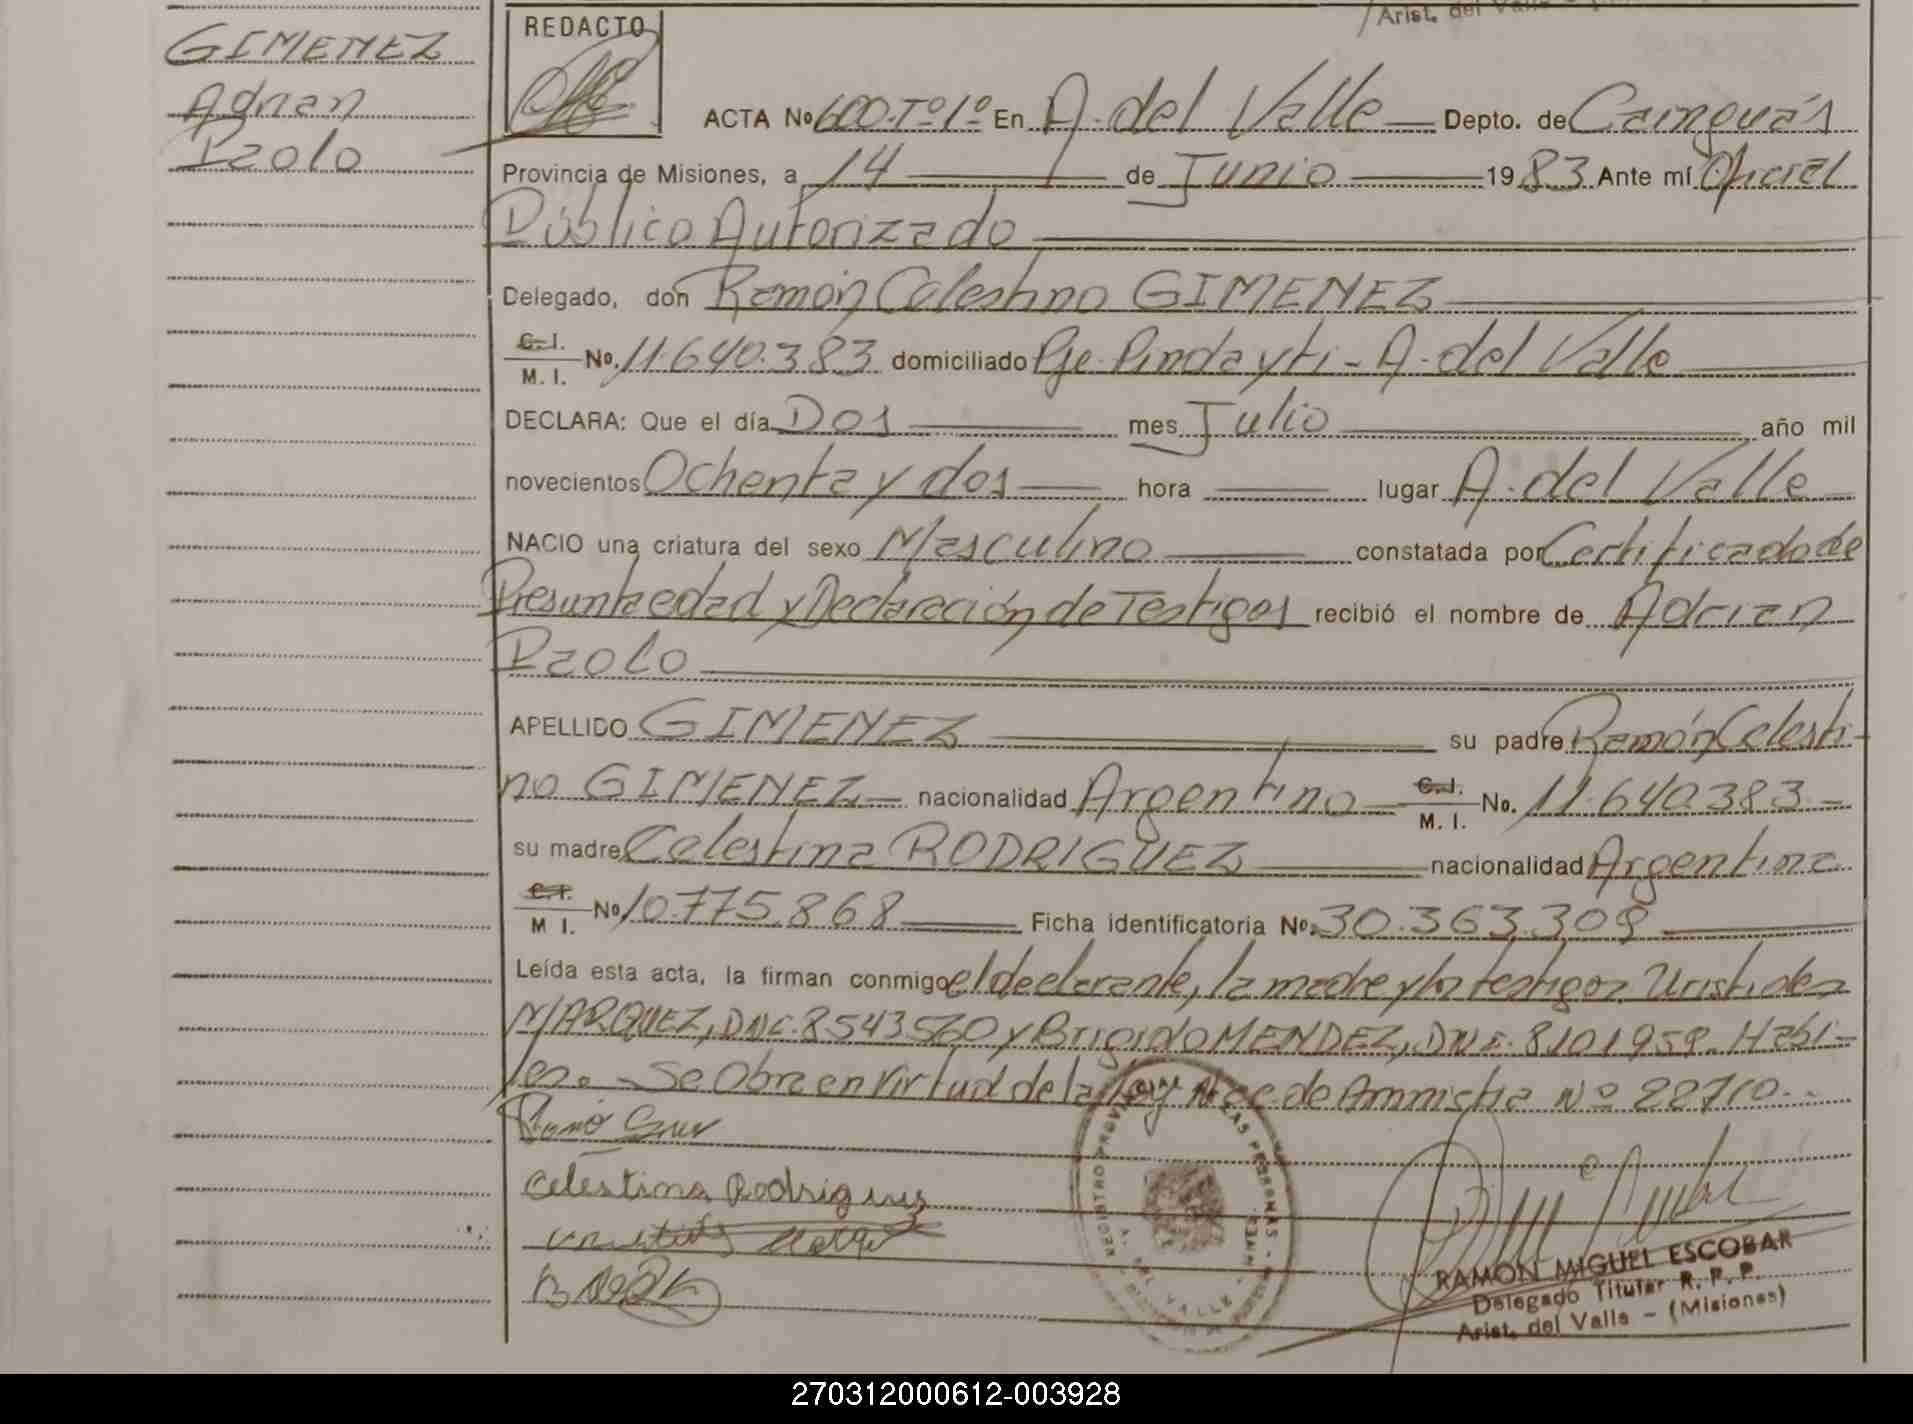 Arist. del Valle
GIMENEZ
Adrian
Paolo
REDACTO
ACTA Nº 600-Tº1º En A. del Valle Depto. de Cainguás
Provincia de Misiones, a 14 de Junio 1983 Ante mí Oficial
Público Autorizado
Delegado, don Ramón Celestino GIMENEZ
C.I. M. I. No. 11.640.383 domiciliado Pje. Pindayti - A. del Valle
DECLARA: Que el día Dos mes Julio año mil
novecientos Ochenta y dos hora lugar A. del Valle
NACIO una criatura del sexo Masculino constatada por Certificado de
Presunta edad y Declaración de Testigos recibió el nombre de Adrian
Paolo
APELLIDO GIMENEZ su padre Ramón Celesti-
no GIMENEZ nacionalidad Argentino C.I. M. I. No. 11.640.383
su madre Celestina RODRIGUEZ nacionalidad Argentina
C.I. M I. No 10.775.868 Ficha identificatoria No. 30.363.309
Leída esta acta, la firman conmigo el declarante, la madre y los testigos
MARQUEZ, 8543560 y Brigido MENDEZ, 8101959. Hábi-
les. Se Obra en virtud de la Ley de Amnistia Nº 22710.
Celestina Rodriguez
REGISTRO PROVINCIAL DE LAS PERSONAS
A. DEL VALLE
RAMON MIGUEL ESCOBAR
Delegado Titular R. P. P.
Arist. del Valle - (Misiones)
270312000612-003928